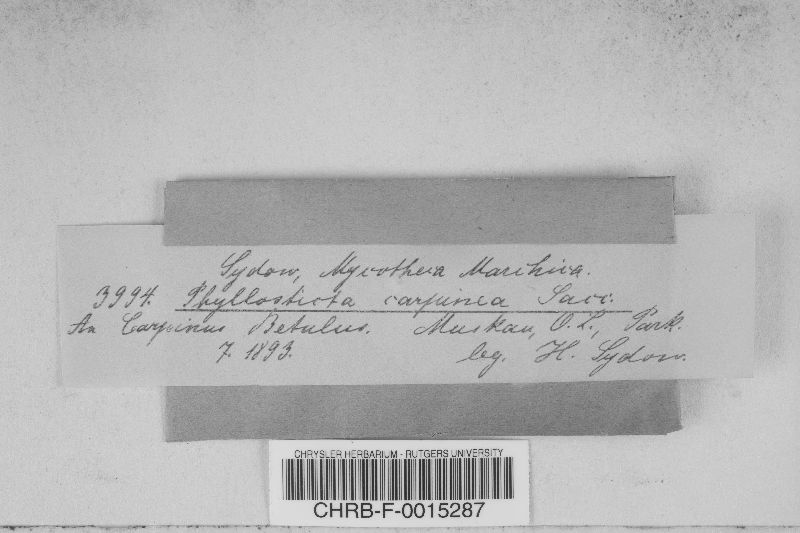 Sydow, Mycotheca Marchica.
3994. Phyllosticta carpinea Sacc.
An Carpinus Betulus. Muskau, O. L., Park.
7. 1893. leg. H. Sydow.
CHRYSLER HERBARIUM - RUTGERS UNIVERSITY
CHRB-F-0015287